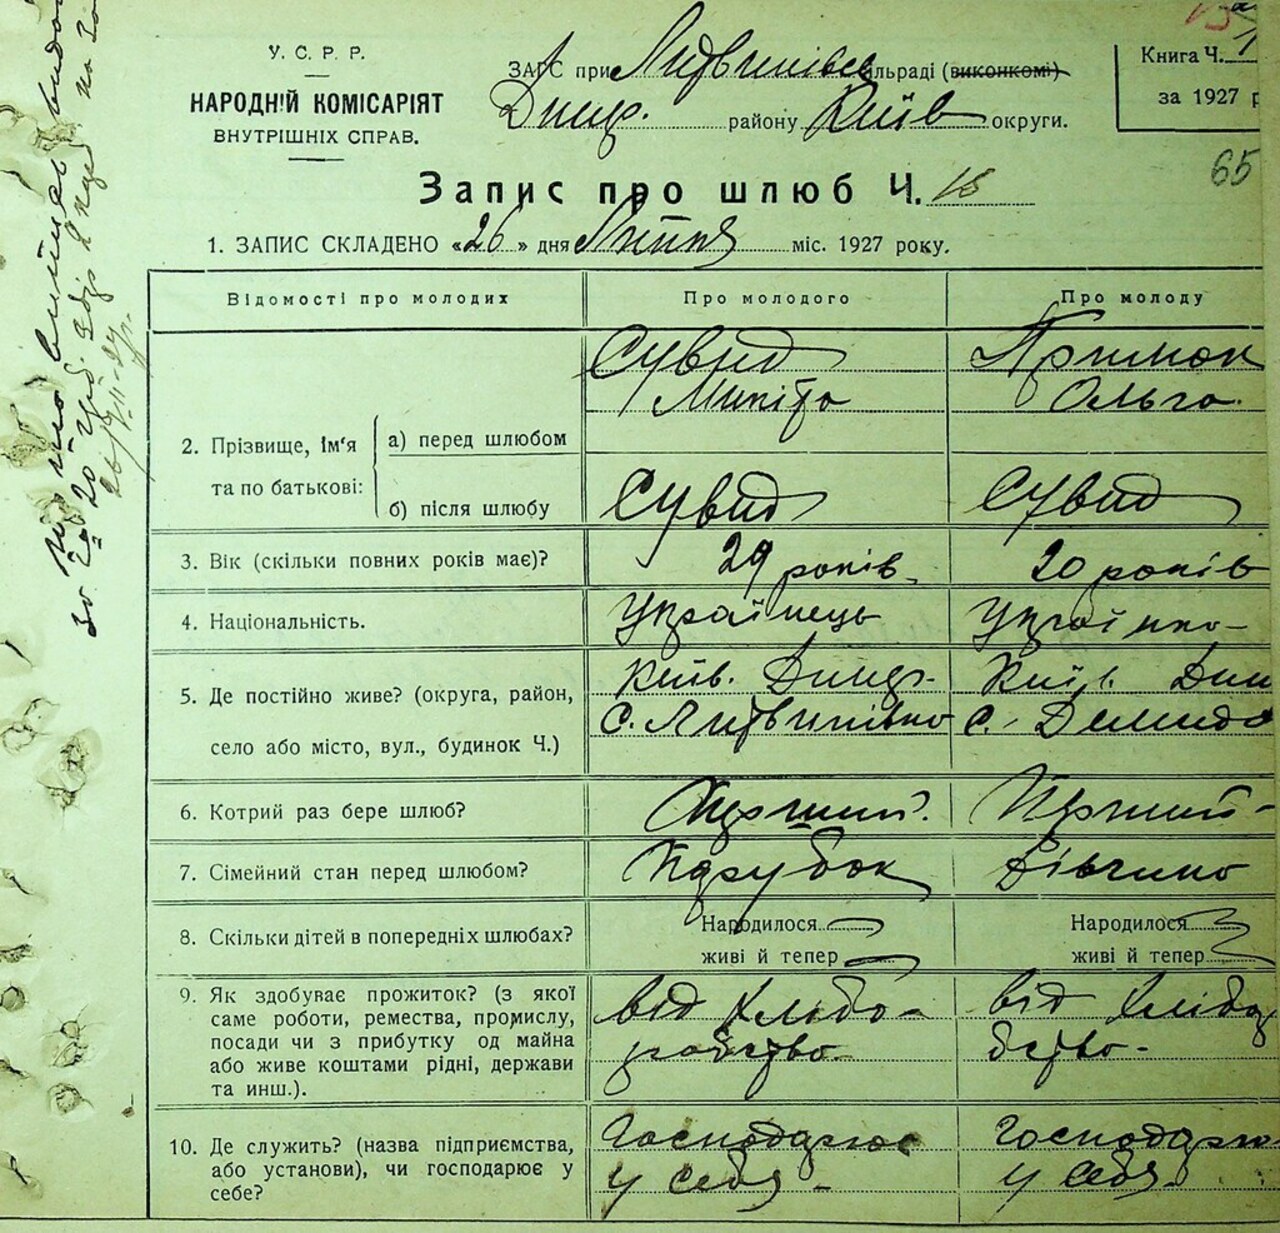 У. С. Р. Р.
НАРОДНІЙ КОМІСАРІЯТ
ВНУТРІШНІХ СПРАВ.
ЗАГС при Литвинівск сільраді (виконкомі)
Димер. району Київ округи.
Книга Ч. 1
за 1927 р
65
Запис про шлюб Ч. 16
1. ЗАПИС СКЛАДЕНО «26» дня Липня міс. 1927 року.
Відомості про молодих Про молодого Про молоду
2. Прізвище, ім'я та по батькові:
а) перед шлюбом
Сувид Микіта
Примак Ольга
б) після шлюбу Сувид Сувид
3. Вік (скільки повних років має)? 29 років 20 років
4. Національність. Українець Українка
5. Де постійно живе? (округа, район,
село або місто, вул., будинок Ч.)
Київ. Димер.
с. Литвинівка
Київ. Дим
с. Демидо
6. Котрий раз бере шлюб? Перший. Перший
7. Сімейний стан перед шлюбом? Парубок Дівчина
8. Скільки дітей в попередніх шлюбах?
Народилося
живі й тепер
Народилося
живі й тепер
9. Як здобуває прожиток? (з якої
саме роботи, ремества, промислу,
посади чи з прибутку од майна
або живе коштами рідні, держави
та инш.).
від хлібо-
робства
від хлібор
бства
10. Де служить? (назва підприємства,
або установи), чи господарює у
себе?
Господарює
у себе
Господарю
у себе